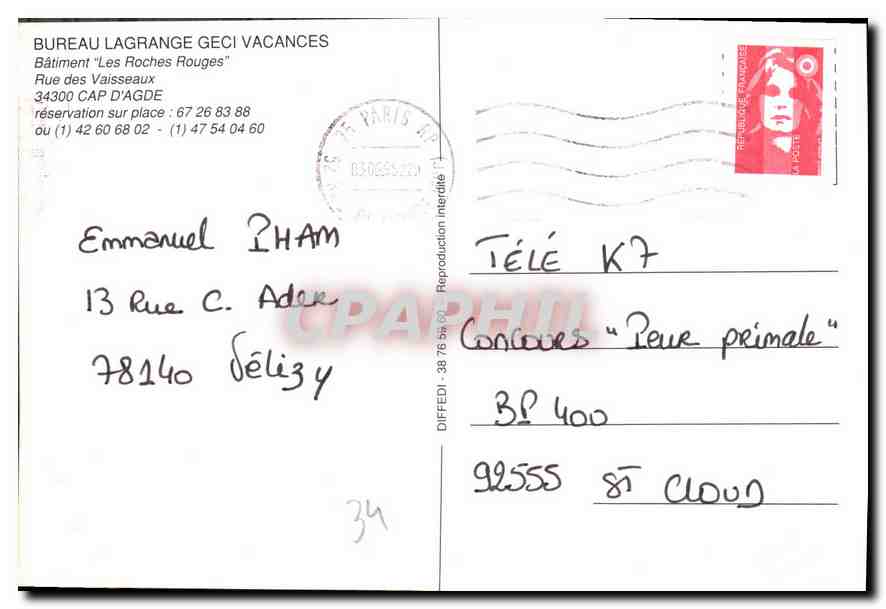 BUREAU LAGRANGE GECI VACANCES
Bâtiment "Les Roches Rouges"
Rue des Vaisseaux
34300 CAP D'AGDE
réservation sur place : 67 26 83 88
ou (1) 42 60 68 02 - (1) 47 54 04 60
PARIS
RÉPUBLIQUE FRANÇAISE
LA POSTE
Emmanuel PHAM
13 Rue C. Ader
78140 Vélizy
34
DIFFEDI - 38 76 59 60 Reproduction interdite
TÉLÉ K7
CONCOURS "Peur primale"
BP 400
92555 ST CLOUD
CPAPHIL